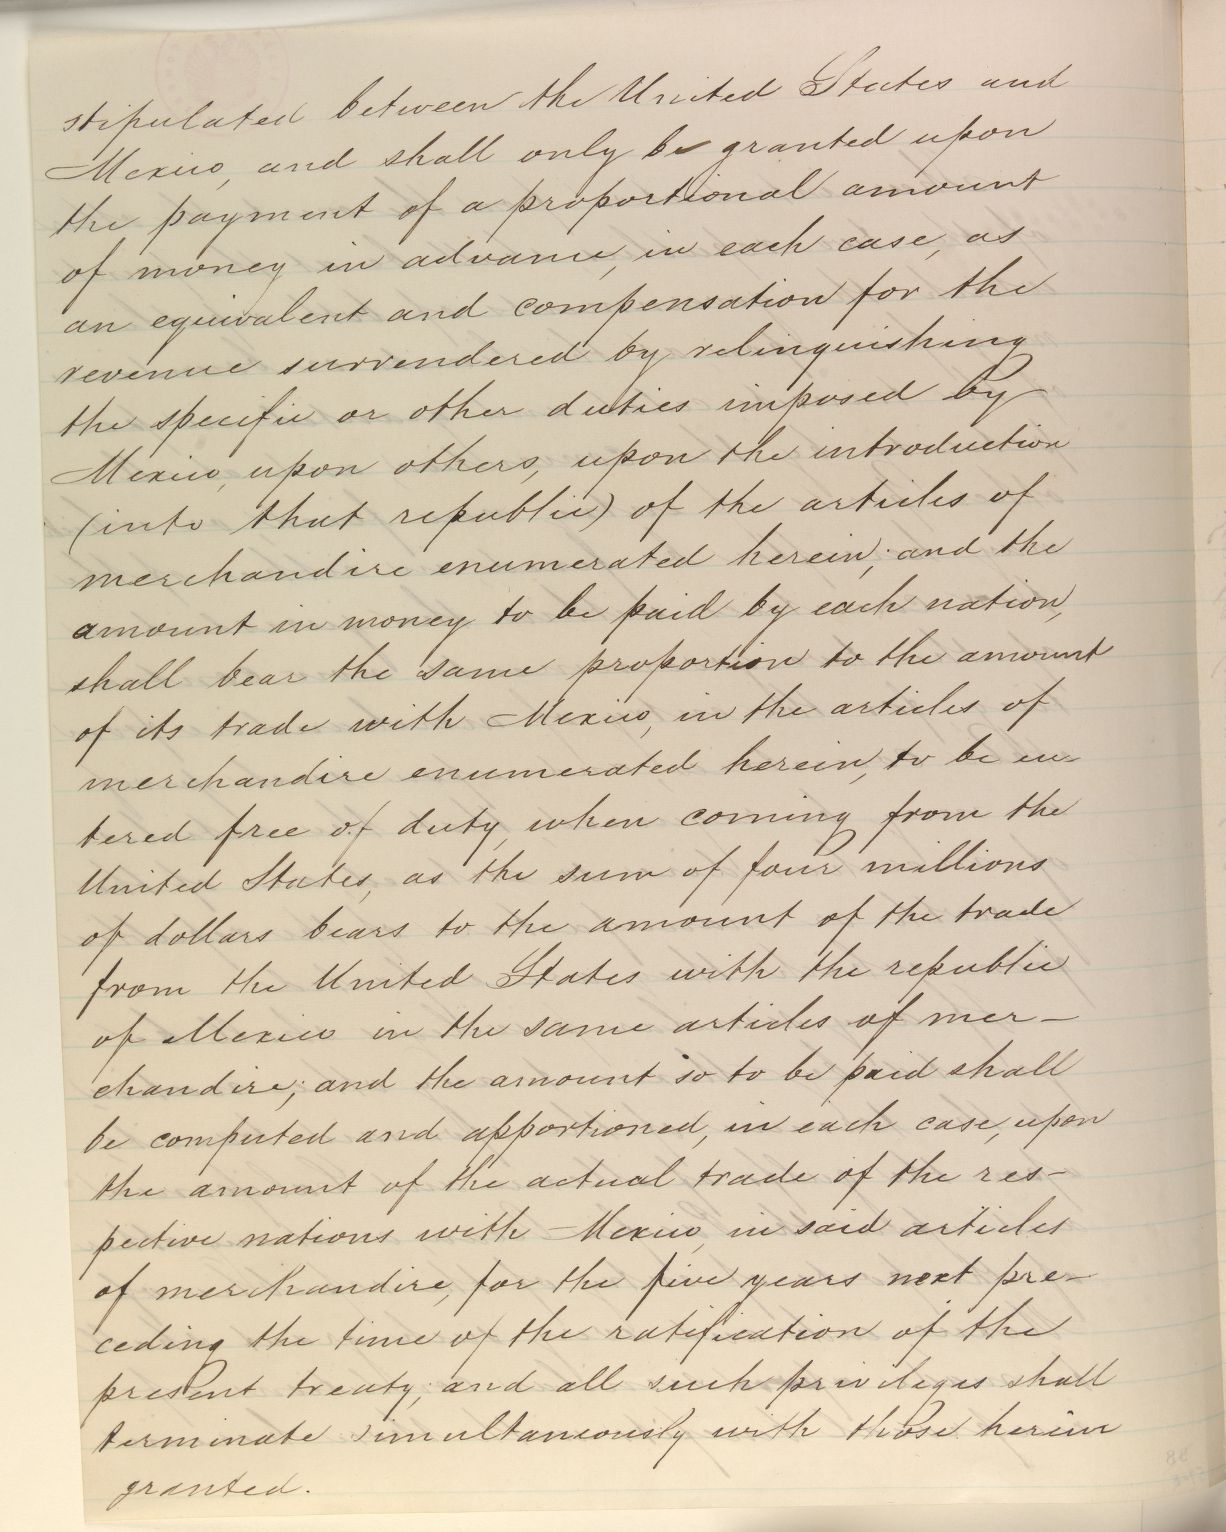 stipulated between the United States and
Mexico, and shall only be granted upon
the payment of a proportional amount
of money in advance, in each case, as
an equivalent and compensation for the
revenue surrendered by relinquishing
the specific or other duties imposed by
Mexico, upon others, upon the introduction
(into that republic) of the articles of
merchandise enumerated herein; and the
amount in money to be paid by each nation,
shall bear the same proportion to the amount
of its trade with Mexico, in the articles of
merchandise enumerated herein, to be en-
tered free of duty, when coming from the
United States, as the sum of four millions
of dollars bears to the amount of the trade
from the United States with the republic
of Mexico in the same articles of mer-
chandise; and the amount so to be paid shall
be computed and apportioned, in each case, upon
the amount of the actual trade of the res-
pective nations with Mexico, in said articles
of merchandise, for the five years next pre-
ceding the time of the ratification of the
present treaty; and all such privileges shall
terminate simultaneously with those herein
granted.